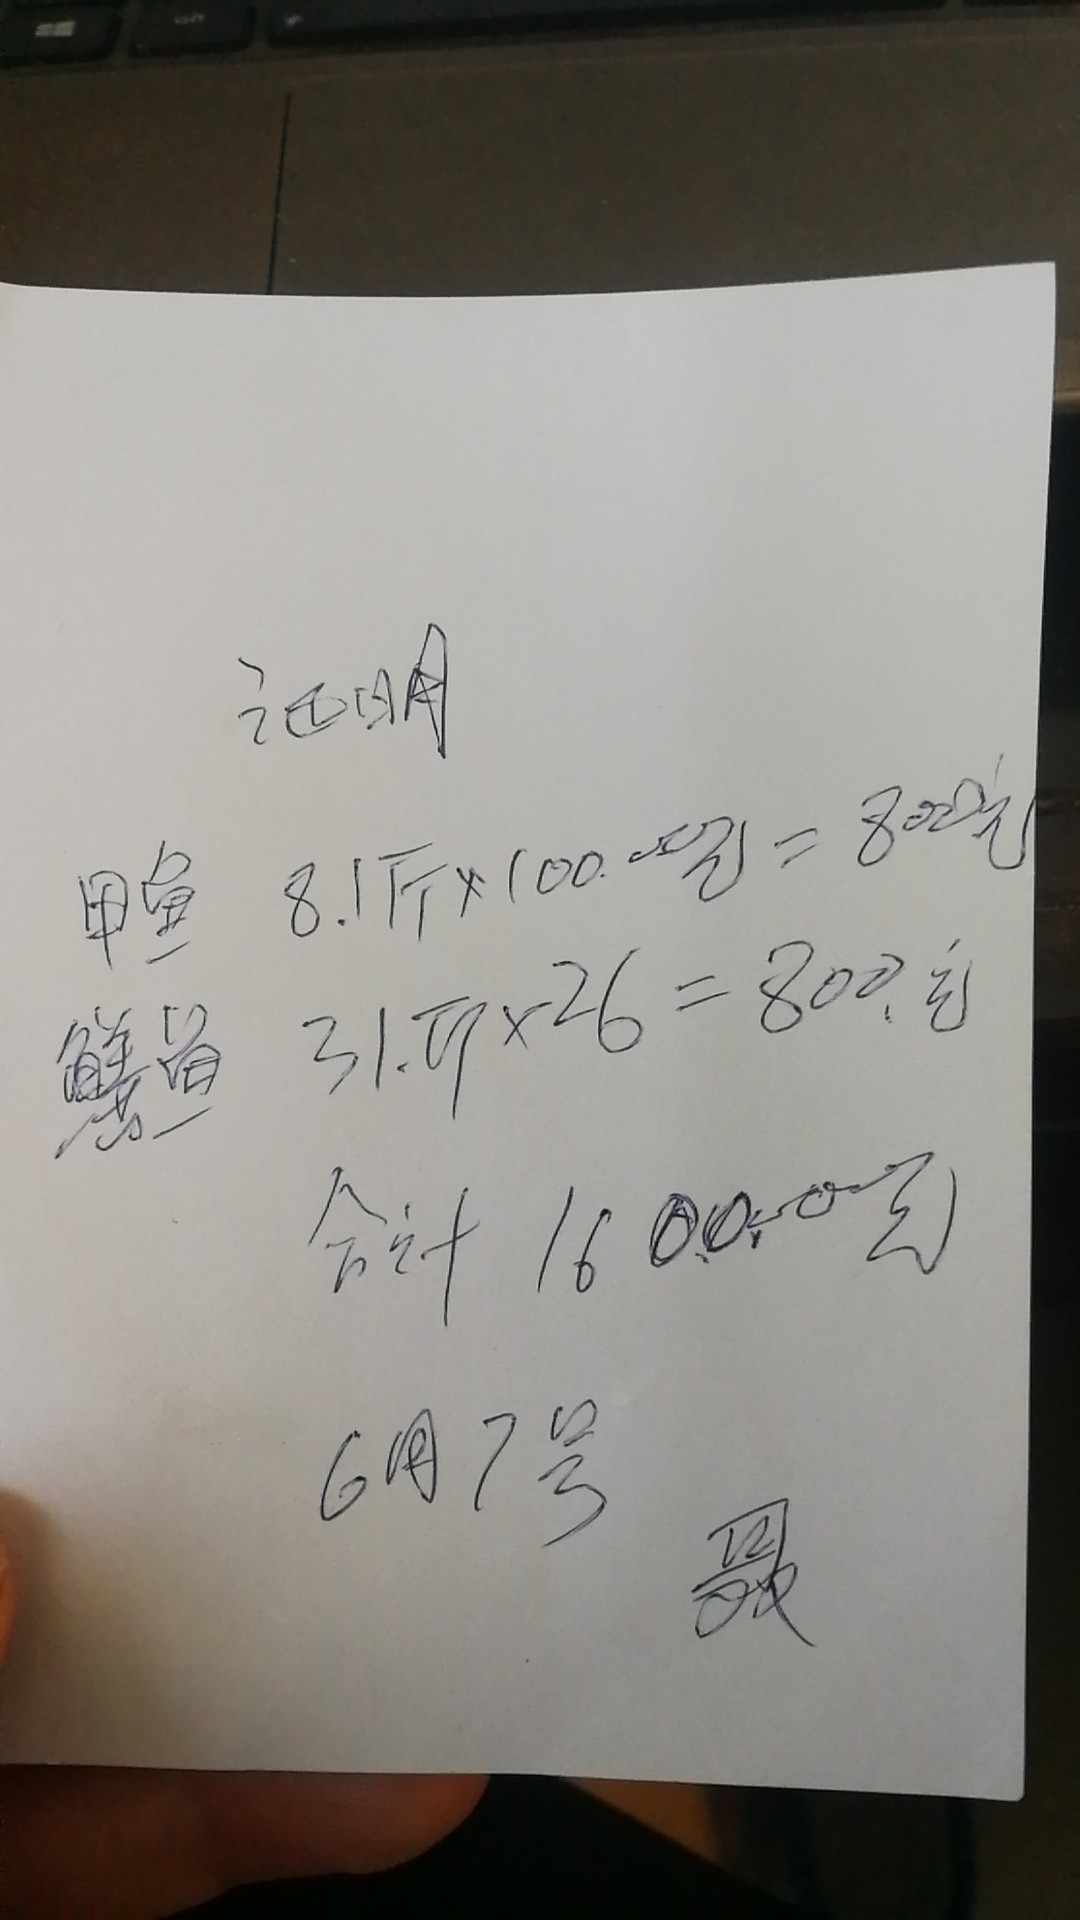 证明
甲鱼 8.1斤×100.00元=800元
鳝鱼 31.斤×26=800.元
合计 1600.00元
6月7号
聂